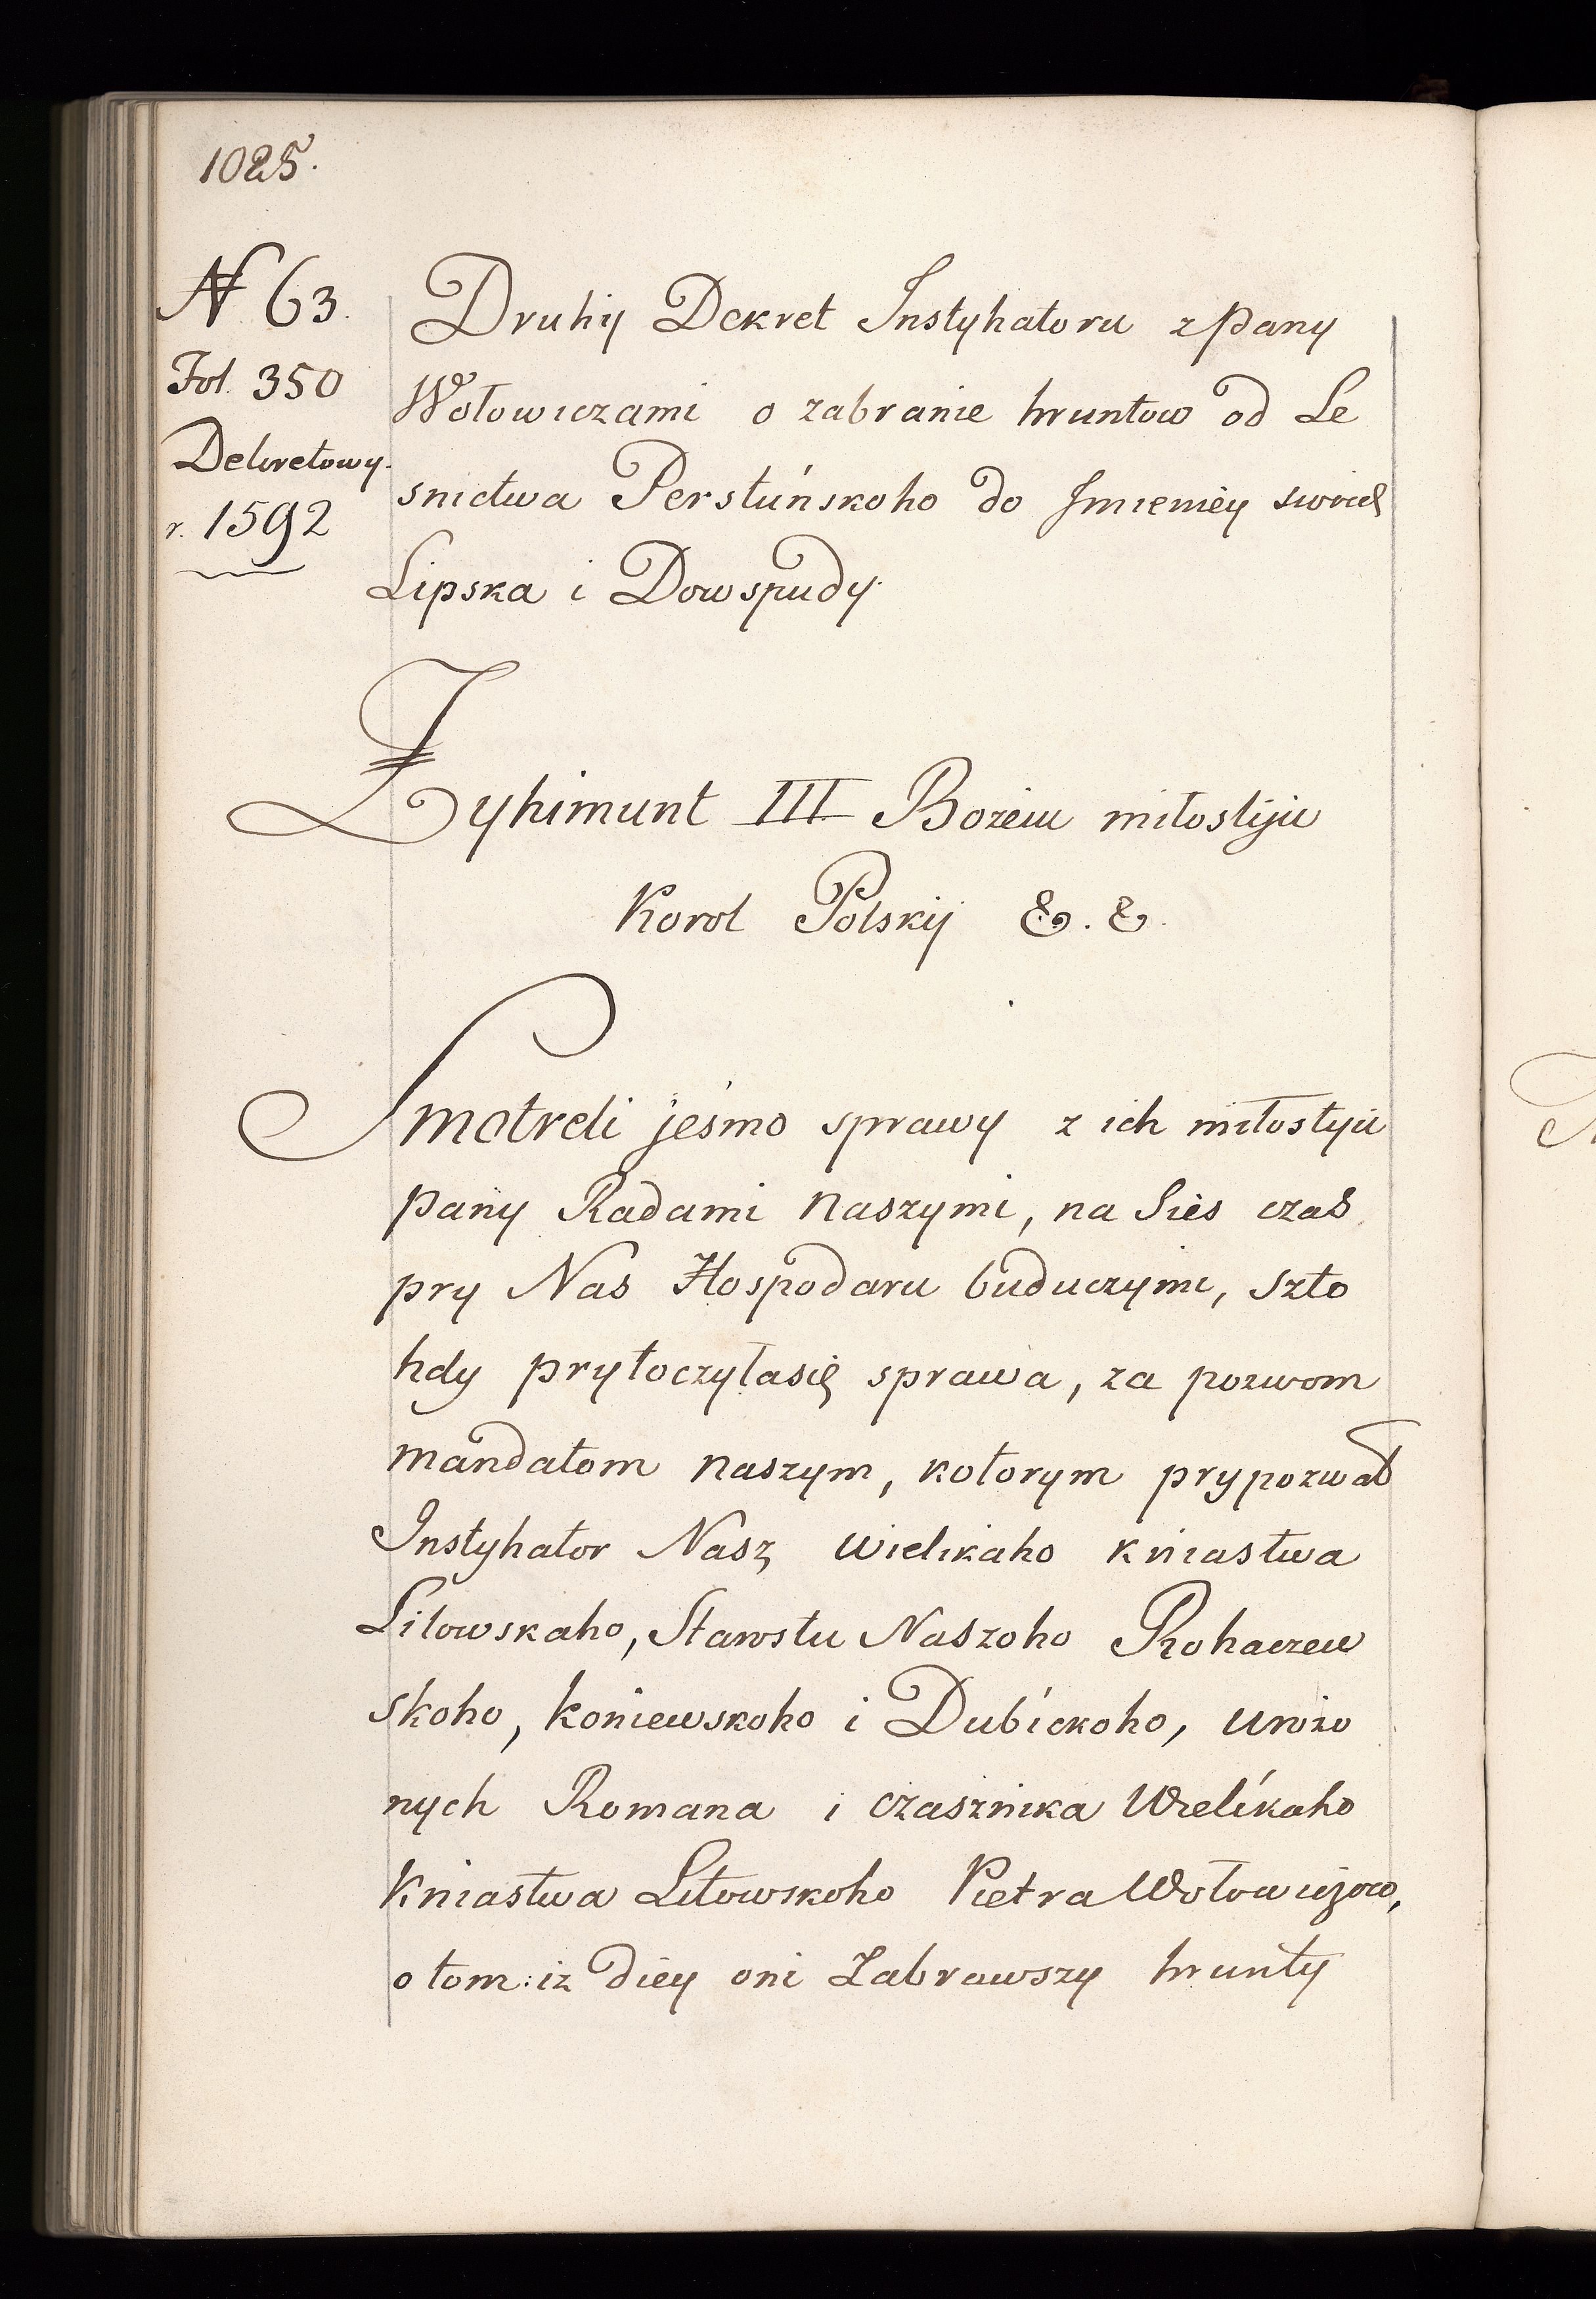 1025.
N 63.
Fol. 350
Dekretowy.
r. 1592
Druhij Dekret Instyhatoru z pany
Wołowiczami o zabranie hruntow od Le
snictwa Perstuńskoho do Imieniey swoich
Lipska i Dowspudy.
Zyhimunt III Bożeiu miłostiju
Korol Polskij &. &.
Smotreli jeśmo sprawy z ich miłostyiu
pany Radami naszymi, na sies czas
pry Nas Hospodaru buduczymi, szto
hdy prytoczyłasię sprawa, za pozwom
mandatom naszym, kotorym prypozwał
Instyhator Nasz wielikaho kniastwa
Litowskaho, Starostu Naszoho Rohaczew
skoho, koniewskoho i Dubickoho, urożo
nych Romana i czasznika Welikaho
Kniastwa Litowskoho Pietra Wołowiczow,
o tom: iż diey oni Zabrawszy hrunty